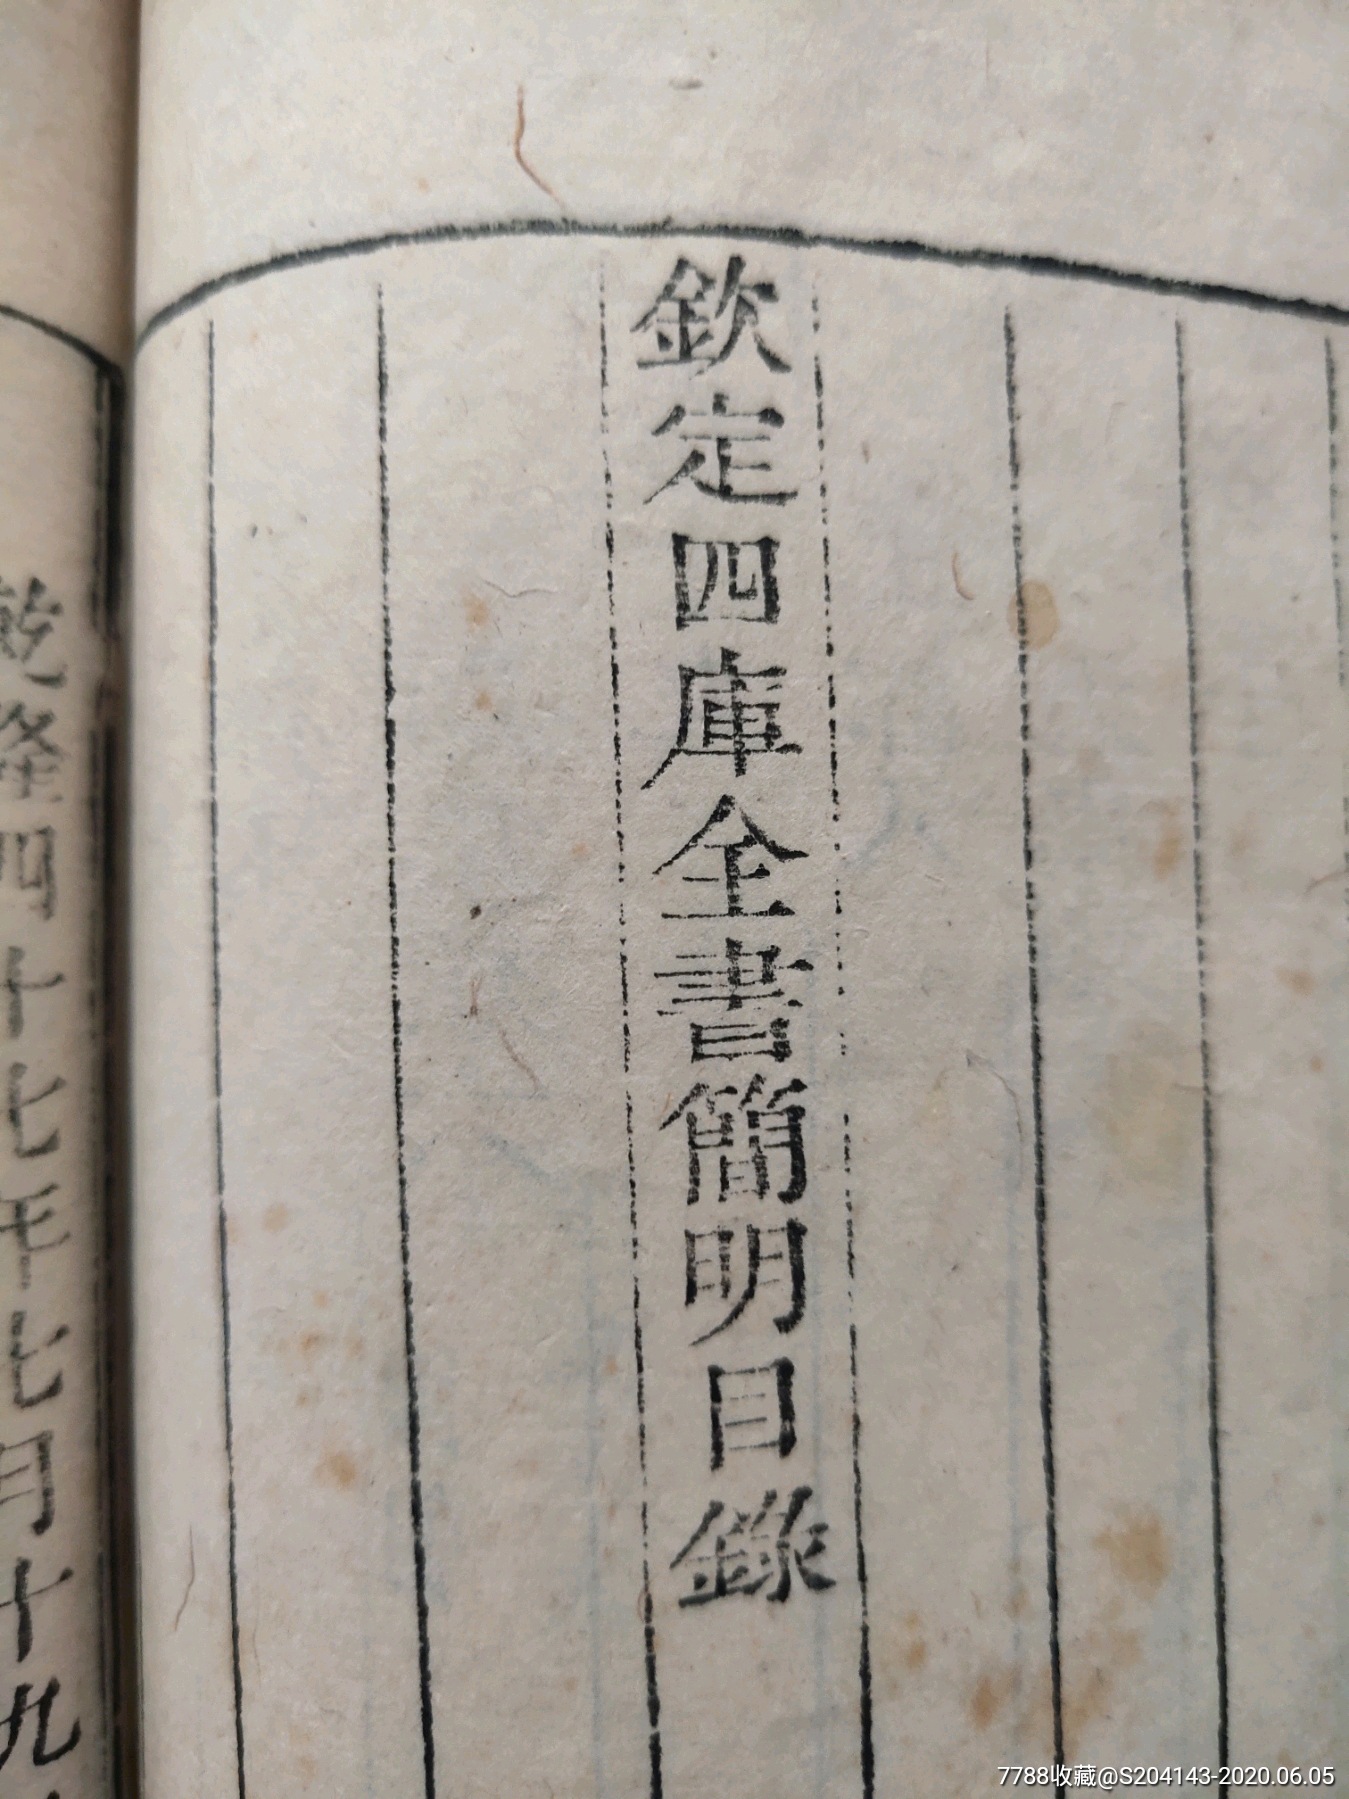 欽定四庫全書簡明目錄
乾隆四十七年七月十九
7788收藏@S204143-2020.06.05